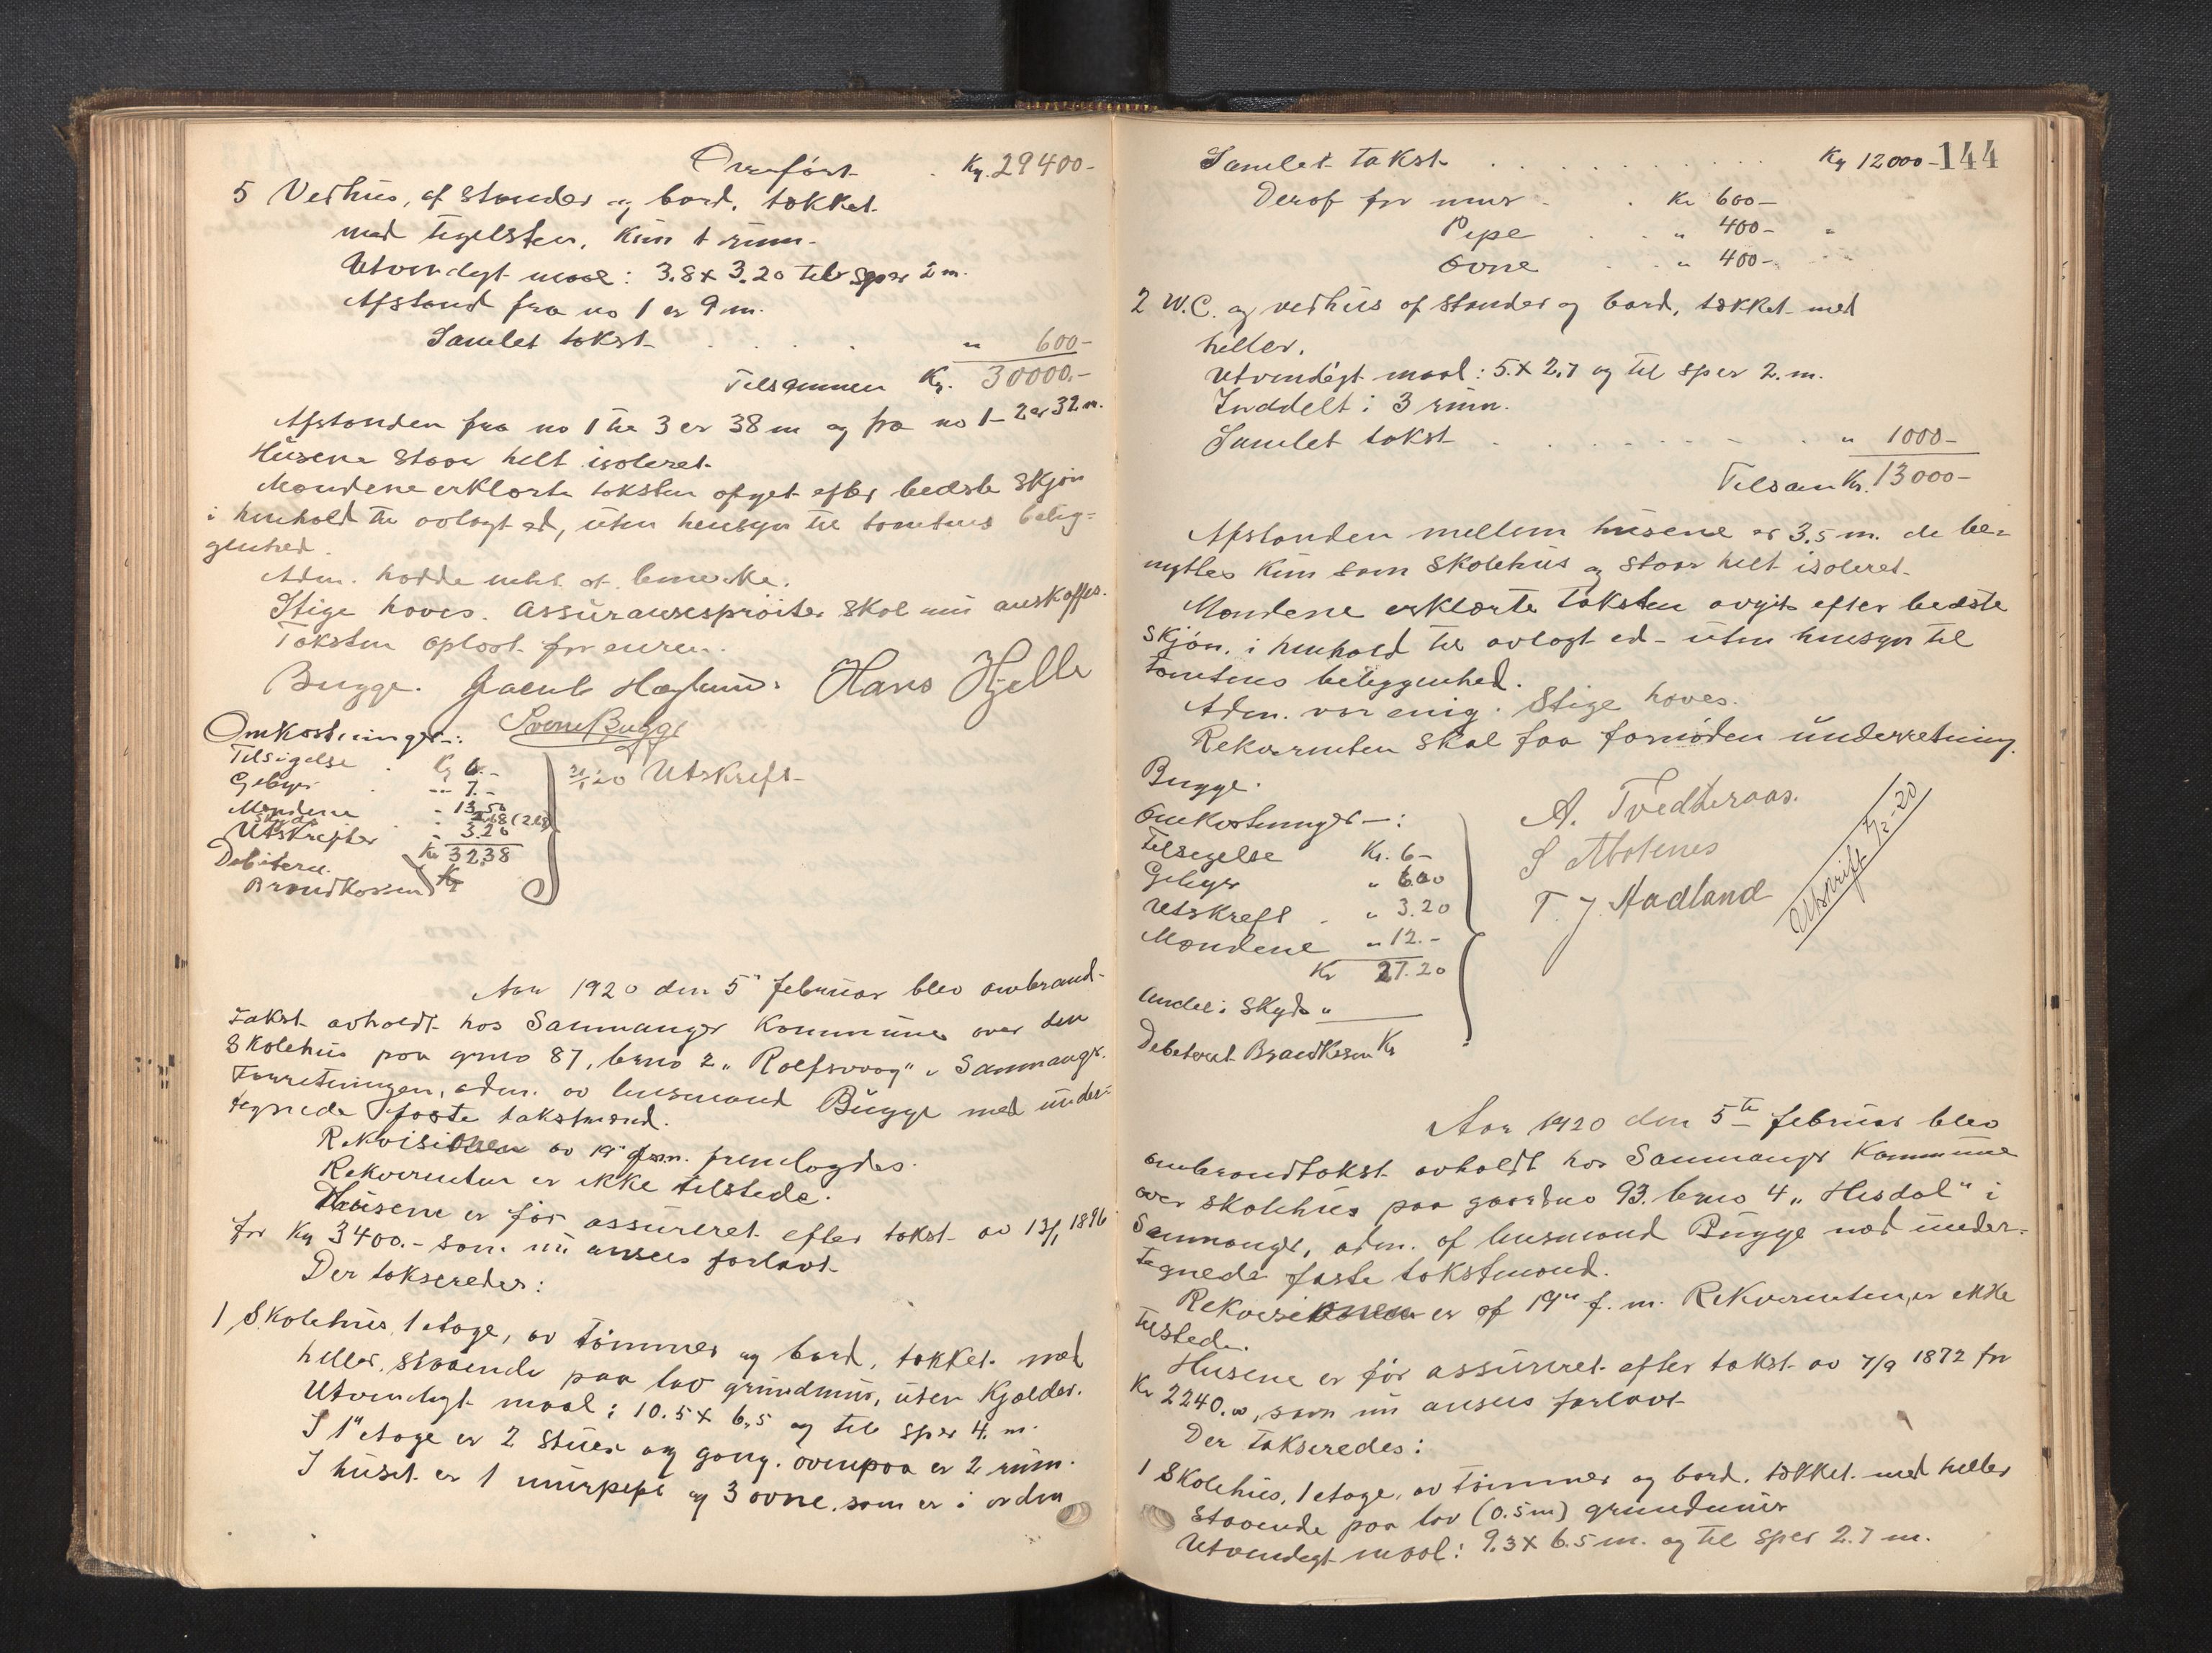 Overført . Kr. 29400-
5 Vedhus, af stander og bord, tækket
med tegelsten, kun 1 rum.
Utvendigt maal: 3.8 x 3.20 til sper 2 m.
Afstand fra no 1 er 9 m.
Samlet takst . . . . " 600-
Tilsammen Kr. 30000.-
Afstanden fra no 1 til 3 er 38 m og fra no 1-2 er 32 m.
Husene staar helt isoleret.
Mændene erklærte taksten afget efter bedste skjøn
i henhold til avlagt ed, uten hensyn til tomtens belig=
genhed.
Adm. hadde intet at bemerke.
Stige haves. Assuransesprøiter skal nu anskaffes.
Taksten oplæst foreuren.
Bugge. Jacob Haglund. Hans Hjelle
Svend Bugge
Omkostninger:
Tilsigelse . Kr 6.-
Gebyr . -- 7.-
Mændene - 13.50
Skyds - 2.68 (268)
Utskrifter - 3.20
Kr 32.38
21/1 20 Utskrift
Debiteret
Brandkassen Kr
Aar 1920 den 5 februar blev ombrand-
takst avholdt hos Samnanger Kommune over den
skolehus paa grno 87, brno 2 „Rolfsvaag" i Samnanger.
Forretningen, adm. av lensmand Bugge med under=
tegnede faste takstmænd.
Rekvisitionen av 19 f.m. fremlagdes.
Rekvirenten er ikke tilstede.
Husene er før assureret efter takst av 13/1 1896
for Kr 3400.- som nu ansees forlavt
Der takseredes:
1 Skolehus, 1 etage, av tømmer og bord, tækket med
heller, staaende paa lav grundmur, uten kjelder.
Utvendigt maal: 10.5 x 6.5 og til sper 4. m.
I 1" etage er 2 stuer og gang. ovenpaa er 2 rum.
I huset er 1 murpipe og 3 ovne, som er i orden
144
Samlet takst . . . . . . . . . Kr 12000-
Derof for mur . . Kr 600-
Pipe . . " 400-
Ovne . . " 400-
2 W.C. og vedhus af stander og bord, tækket med
heller.
Utvendigt maal: 5. x 2.7 og til sper 2. m.
Inddelt i 3 rum.
Samlet takst . . . . . . . " 1000-
Tilsam Kr. 13000-
Afstanden mellem husene er 3.5 m. de be=
nyttes kun som skolehus og staar helt isoleret.
Mændene erklærte taksten avgit efter bedste
skjøn, i henhold til avlagt ed - uten hensyn til
tomtens beliggenhed.
Adm. var enig. Stige haves.
Rekvirenten skal faa fornøden underretning.
Bugge.
A. Tvedteraas.
S Aadland
T. J. Aadland
Utskrift 7/2-20
Omkostninger-:
Tilsigelse Kr. 6-
Gebyr " 6.00
Utskreft . " 3.20
Mændene " 12.-
Kr 27.20
Andel i Skyds "
Debiteret Brandkassen Kr
Aar 1920 den 5te februar blev
ombrandtakst avholdt hos Samnanger Kommune
over skolehus paa gaardno 93. brno 4 „Hisdal" i
Samnanger, adm. af lensmand Bugge med under-
tegnede faste takstmænd.
Rekvisitionen er af 19" f. m. Rekvirenten er ikke
tilsted.
Husene er før assureret efter takst av 7/9 1872 for
Kr 2240.00, som nu ansees forlavt
Der takseredes:
1 Skolehus, 1 etage, av tømmer og bord, tækket med heller
staaende paa lav (0.5 m) grundmur
Utvendigt maal: 9.3 x 6.5 m. og til sper 2.7 m.